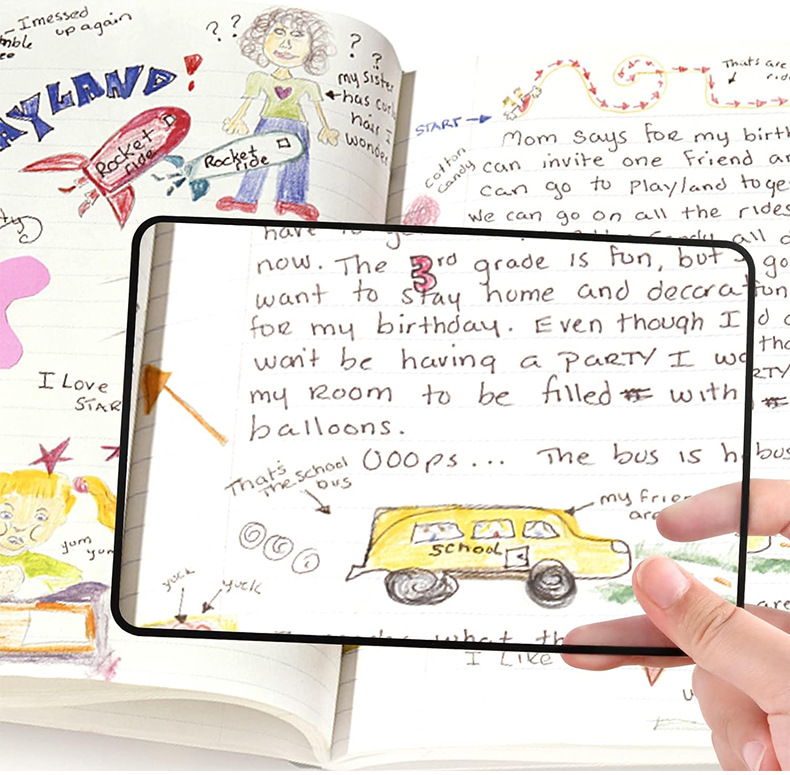 I messed
up again
AYLAND!
? ?
? ?
my sister
has curly
hair I
wonder
Rocket
ride
Rocket
ride
I Love
STAR
yum
yum
START
That's are
Mom says for my birth
cotton
candy
can invite one friend
can go to Playland toge
we can go on all the rides
all d
have to go
now. The 3rd grade is fun, but
want to stay home and decora
for my birthday. Even though I
won't be having a PARTY I wo
my room to be filled with
balloons.
OOOps... The bus is h
bus
That's
the school
bus
my frien
are
School
yuck
yuck
are
what th
I Like